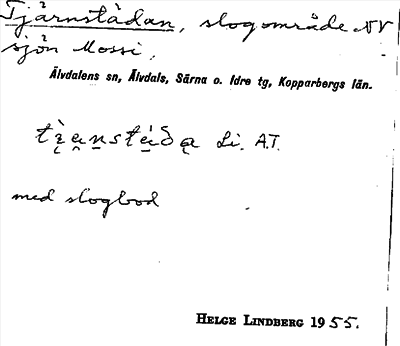 Tjärnstådan, slogområde NV
sjön Mossi.
Älvdalens sn, Älvdals, Särna o. Idre tg, Kopparbergs län.
Li. A.T.
med slogbod
HELGE LINDBERG 1955.